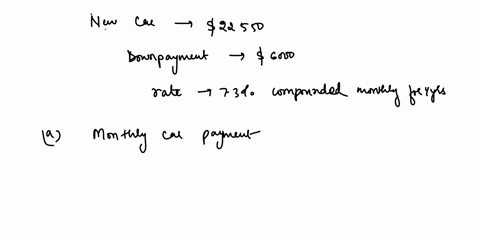 New car → $ 22 550
Downpayment → $ 6000
rate → 73% compounded monthly for 4yrs
(a) Monthly car payment